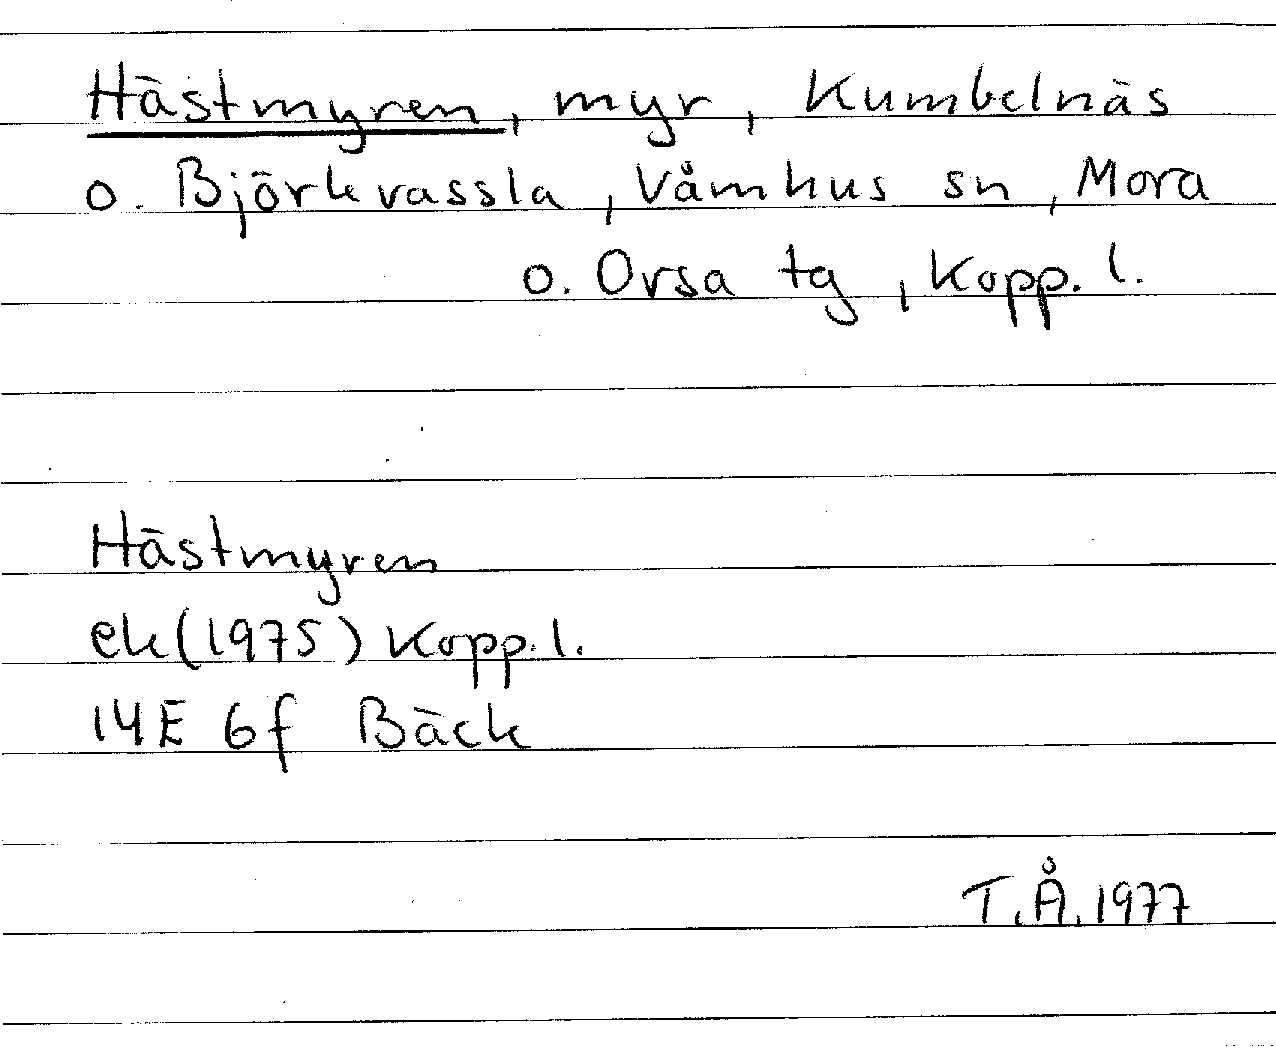 Hästmyren, myr, Kumbelnäs
o. Björkvassla, Våmhus sn, Mora
o. Orsa tg, Kopp. l.
Hästmyren
ek (1975) Kopp. l.
14E 6f Bäck
T.Å. 1977